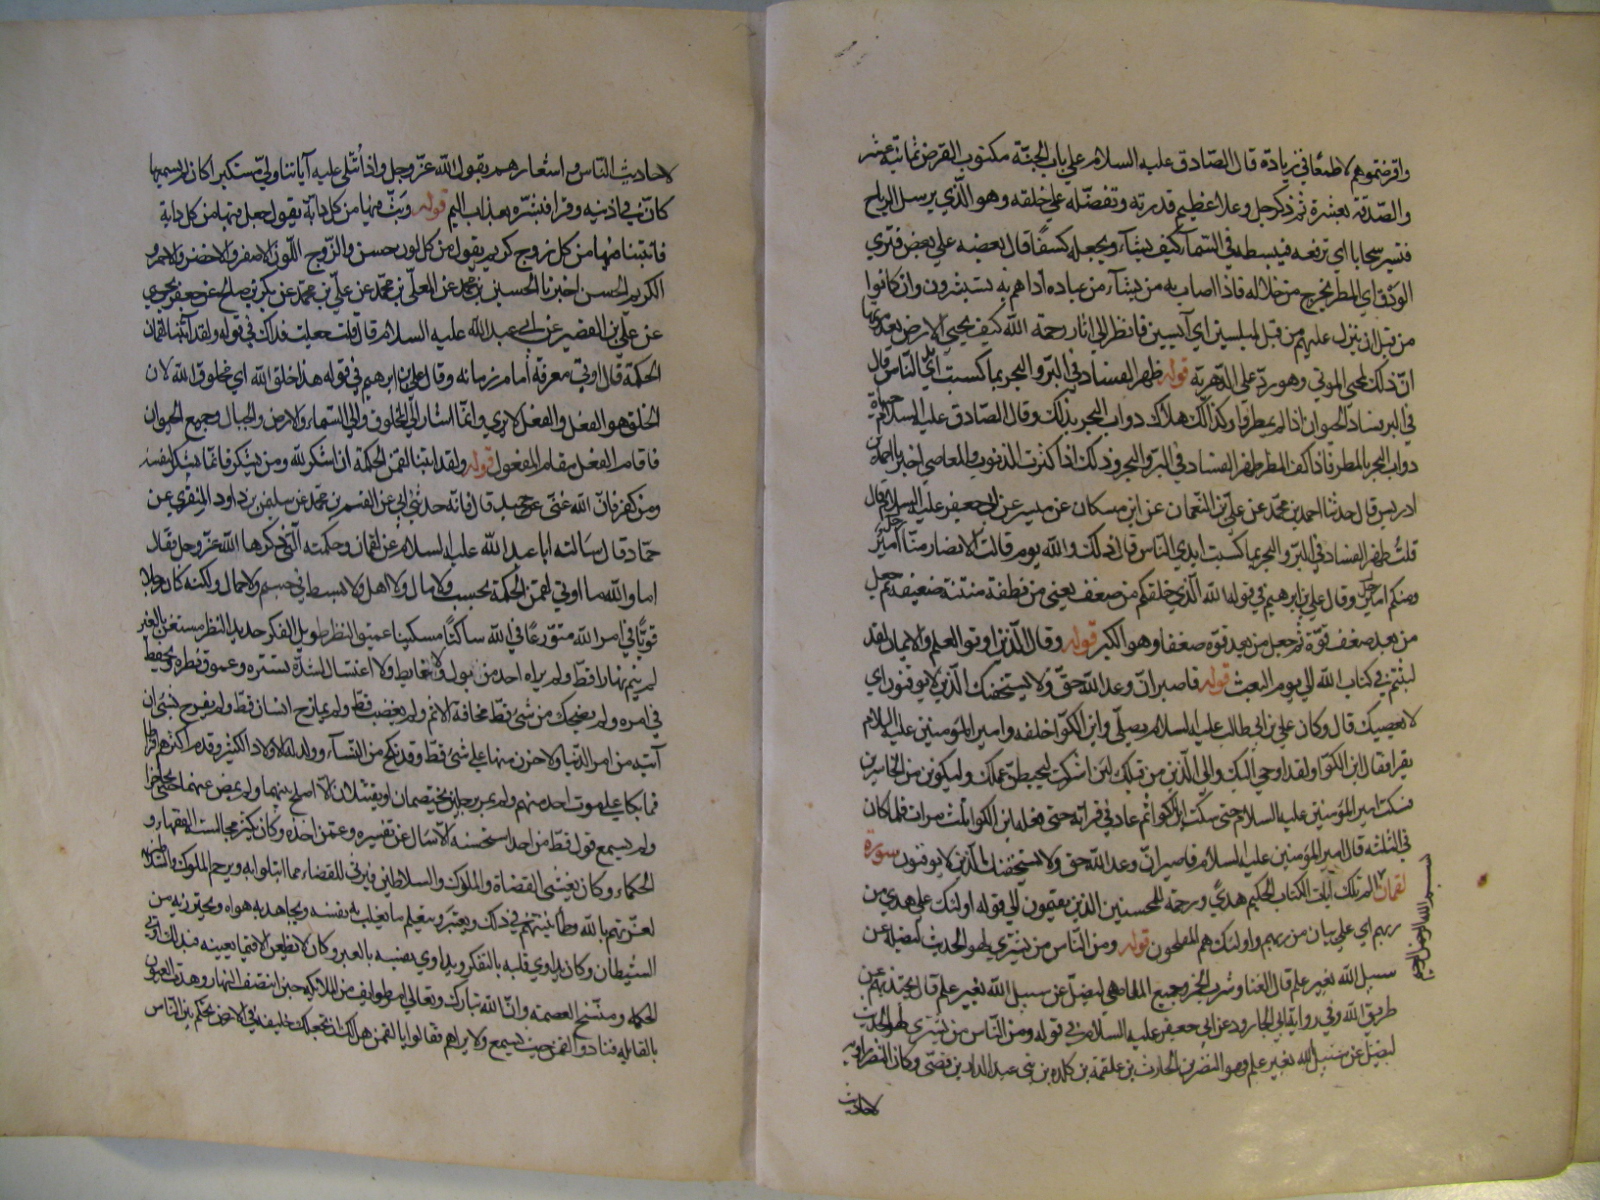 واقرضتموهم لا طمعًا في زيادة قال الصّادق عليه السلام علي باب الجنّة مكتوب القرض ثمانية عشر
والصّدقة بعشرة ثم ذكر جل وعلا عظيم قدرته وتفضّله علي خلقه وهو الّذي يرسل الرياح
فتثير سحابا اي ترفعه فيبسطه في السّمآء كيف يشآء ويجعله كسفًا قال بعضه علي بعض فتري
الودق اي المطر يخرج من خلاله فاذا اصاب به من يشآء من عباده اذا هم به يستبشرون وان كانوا
من قبل ان ينزل عليهم من قبله لمبلسين اي آيسين فانظر الي اثار رحمة الله كيف يحيي الارض بعد موتها
انّ ذلك لمحيي الموتي وهو ردّ علي الدّهرية قوله ظهر الفساد في البرّ والبحر بما كسبت ايدي النّاس قال
في البر فساد الحيوان اذا لم يمطر وكذلك هلاك دواب البحر بذلك وقال الصّادق عليه السلام حياة
دواب البحر بالمطر فاذا كف المطر ظهر الفساد في البرّ والبحر وذلك اذا كثرت الذنوب والمعاصي اخبرنا احمد بن
ادريس قال حدثنا احمد بن محمّد عن علي بن النّعمان عن ابن مسكان عن ميسر عن ابي جعفر عليه السلام قال
قلت ظهر الفساد في البرّ والبحر بما كسبت ايدي الناس قال ذلك والله يوم قالت الانصار منّا امير
ومنكم امير وقال علي بن ابرهيم في قوله الله الّذي خلقكم من ضعف يعني من نطفة منتنة ضعيفة ثم جعل
من بعد ضعف قوّة ثم جعل من بعد قوّة ضعفا وهو الكبر قوله وقال الّذين اوتوا العلم والايمان لقد
لبثتم في كتاب الله الي يوم البعث قوله فاصبر انّ وعد الله حقّ ولا يستخفنك الّذين لا يوقنون اي
لا يغضبك قال وكان علي بن ابي طالب عليه السلام يصلّي وابن الكوّا خلفه وامير المؤمنين عليه السلام
يقرا فقال ابن الكوّا ولقد اوحي اليك والي الّذين من قبلك لئن اشركت ليحبطنّ عملك ولتكونن من الخاسرين
فسكت امير المؤمنين عليه السلام حتي سكت ابن الكوا ثم عاد في قرائته حتي فعله ابن الكوا ثلث مرات فلما كان
في الثلثه قال امير المؤمنين عليه السلام فاصبر انّ وعد الله حق ولا يستخفنك الّذين لا يوقنون سورة
لقمان الم تلك ايات الكتاب الحكيم هديً ورحمة للمحسنين الذين يقيمون الي قوله اولئك علي هدي من
بسم الله الرحمن الرحيم
ربهم اي علي بيان من ربهم واولئك هم المفلحون قوله ومن النّاس من يشتري لهو الحديث ليضل عن
سبيل الله بغير علم قال الغنا وشرب الخمر وجميع الملاهي ليضلّ عن سبيل الله بغير علم قال يحيد بهم عن
طريق الله وفي رواية ابي الجارود عن ابي جعفر عليه السلام في قوله ومن النّاس من يشتري لهو الحديث
ليضل عن سبيل الله بغير علم وهو النضر بن الحارث بن علقمة بن كلده بن بني عبد الدار بن قصّي وكان النضر راويه
لاحاديث
لاحاديث النّاس واشعارهم يقول الله عزّ وجل واذا تتلي عليه آياتنا ولّي مستكبرا كان لم يسمعها
كانّ في اذنيه وقرا فبشّره بعذاب اليم قوله وبثّ فيها من كل دابّة يقول جعل فيها من كل دابة
فانبتنا فيها من كل زوج كريم يقول من كل لون حسن والزّوج اللّون الاصفر والاخضر والاحمر و
الكريم الحسن اخبرنا الحسين بن محمد عن المعلّي بن محمّد عن علي بن محمّد عن بكر بن صالح عن جعفر بن يحيي
عن علي بن القصير عن ابي عبد الله عليه السلام قال قلت جعلت فداك في قوله ولقد آتينا لقمان
الحكمة قال اوتي معرفة امام زمانه وقال علي بن ابرهيم في قوله هذا خلق الله اي مخلوق الله لان
الخلق هو الفعل والفعل لا يري وانّما اشار الي المخلوق والي السماء والارض والجبال وجميع الحيوان
فاقام الفعل مقام المفعول قوله ولقد اتينا لقمن الحكمة ان اشكر لله ومن يشكر فانّما يشكر لنفسه
ومن كفر فانّ الله غني حميد قال فانّه حدثني ابي عن القسم بن محمّد عن سليمن بن داود المنقري عن
حمّاد قال سالت ابا عبد الله عليه السلام عن لقمان وحكمته الّتي ذكرها الله عزّ وجل فقال
اما والله ما اوتي لقمن الحكمة بحسب ولا مال ولا اهل ولا بسط في جسم ولا جمال ولكنه كان رجلا
قويًّا في امر الله متورّعًا في الله ساكتًا مسكينا عميق النظر طويل الفكر حديد النظر مستغن بالعبر
لم ينم نهارًا قط ولم يراه احد من بول ولا غايط ولا اغتسال لشدّة تستّره وعموق نظره وتحفظه
في امره ولم يضحك من شئ قطّ مخافة الاثم ولم يغضب قطّ ولم يمازح انسان قطّ ولم يفرح بشئ ان
آتيه من امر الدّنيا ولا حزن منها علي شئ قطّ وقد نكح من النّسآء وولد له الاولاد الكثير وقدم اكثرهم افراطا
فما بكا علي موت احد منهم ولم يمر برجلين يختصمان او يقتتلان الّا اصلح بينهما ولم يمض عنهما حتي تحاجزا
ولم يسمع قول قط من احد استحسنه الّا سأل عن تفسيره وعمّن اخذه وكان يكثر مجالسة الفقهاء و
الحكماء وكان يغشي القضاة والملوك والسلاطين فيرثي للقضاء مما ابتلوا به ويرحم الملوك والسلاطين
لعزّتهم بالله وطمأنينتهم في ذلك ويعتبر ويتعلم ما يغلب به نفسه ويجاهد به هواه ويحترز به من
الشيطان وكان يداوي قلبه بالتفكر ويداوي نفسه بالعبر وكان لا يظعن الا فيما يعينه فبذلك اوتي
الحكمه ومنح العصمه وانّ الله تبارك وتعالي امر طوايف من الملائكه حين انتصف النهار وهدت العيون
بالقايله فنادوا لقمن حيث يسمع ولا يراهم فقالوا يا لقمن هل لك ان يجعلك خليفه في الارض تحكم بين النّاس